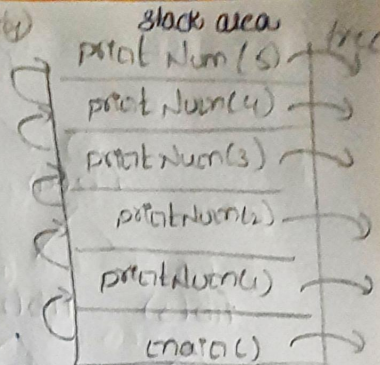 stack area
free
print Num (5)
print Num(4)
print Num(3)
print Num(2)
print Num(1)
main()